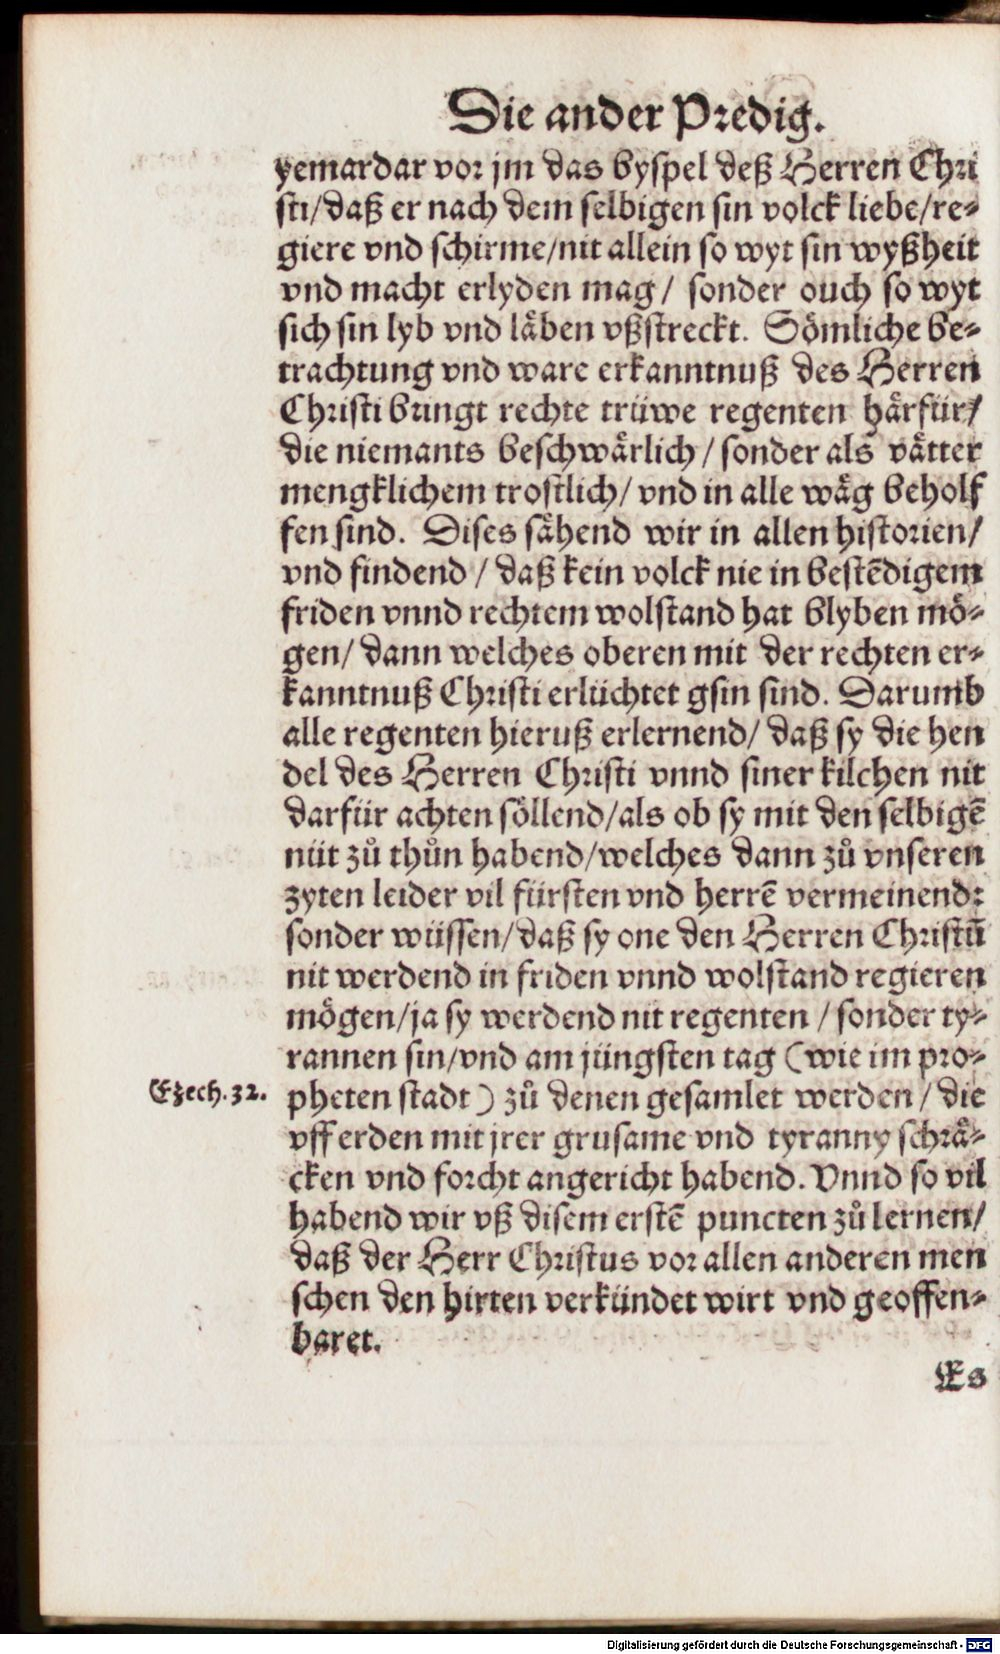 Die ander Predig.
yemardar vor jm das byspel deß Herren Chri
sti/daß er nach dem selbigen sin volck liebe/re⸗
giere vnd schirme/nit allein so wyt sin wyßheit
vnd macht erlyden mag/ sonder ouch so wyt
sich sin lyb vnd låben vßstreckt. Sömliche be⸗
trachtung vnd ware erkanntnuß des Herren
Christi bringt rechte trüwe regenten hårfür/
die niemants beschwårlich/ sonder als våtter
mengklichem trostlich/ vnd in alle wåg beholf
fen sind. Dises såhend wir in allen historien/
vnd findend/ daß kein volck nie in bestẽdigem
friden vnnd rechtem wolstand hat blyben mö⸗
gen/ dann welches oberen mit der rechten er⸗
kanntnuß Christi erlüchtet gsin sind. Darumb
alle regenten hieruß erlernend/ daß sy die hen
del des Herren Christi vnnd siner kilchen nit
darfür achten söllend/als ob sy mit den selbigẽ
nüt zů thůn habend/welches dann zů vnseren
zyten leider vil fürsten vnd herrẽ vermeinend:
sonder wüssen/daß sy one den Herren Christũ
nit werdend in friden vnnd wolstand regieren
mögen/ja sy werdend nit regenten/ sonder ty⸗
rannen sin/vnd am jüngsten tag (wie im pro⸗
Ezech.32. pheten stadt) zů denen gesamlet werden/ die
vff erden mit jrer grusame vnd tyranny schrå⸗
cken vnd forcht angericht habend. Vnnd so vil
habend wir vß disem erstẽ puncten zů lernen/
daß der Herr Christus vor allen anderen men
schen den hirten verkündet wirt vnd geoffen⸗
baret.
Es
Digitalisierung gefördert durch die Deutsche Forschungsgemeinschaft - DFG